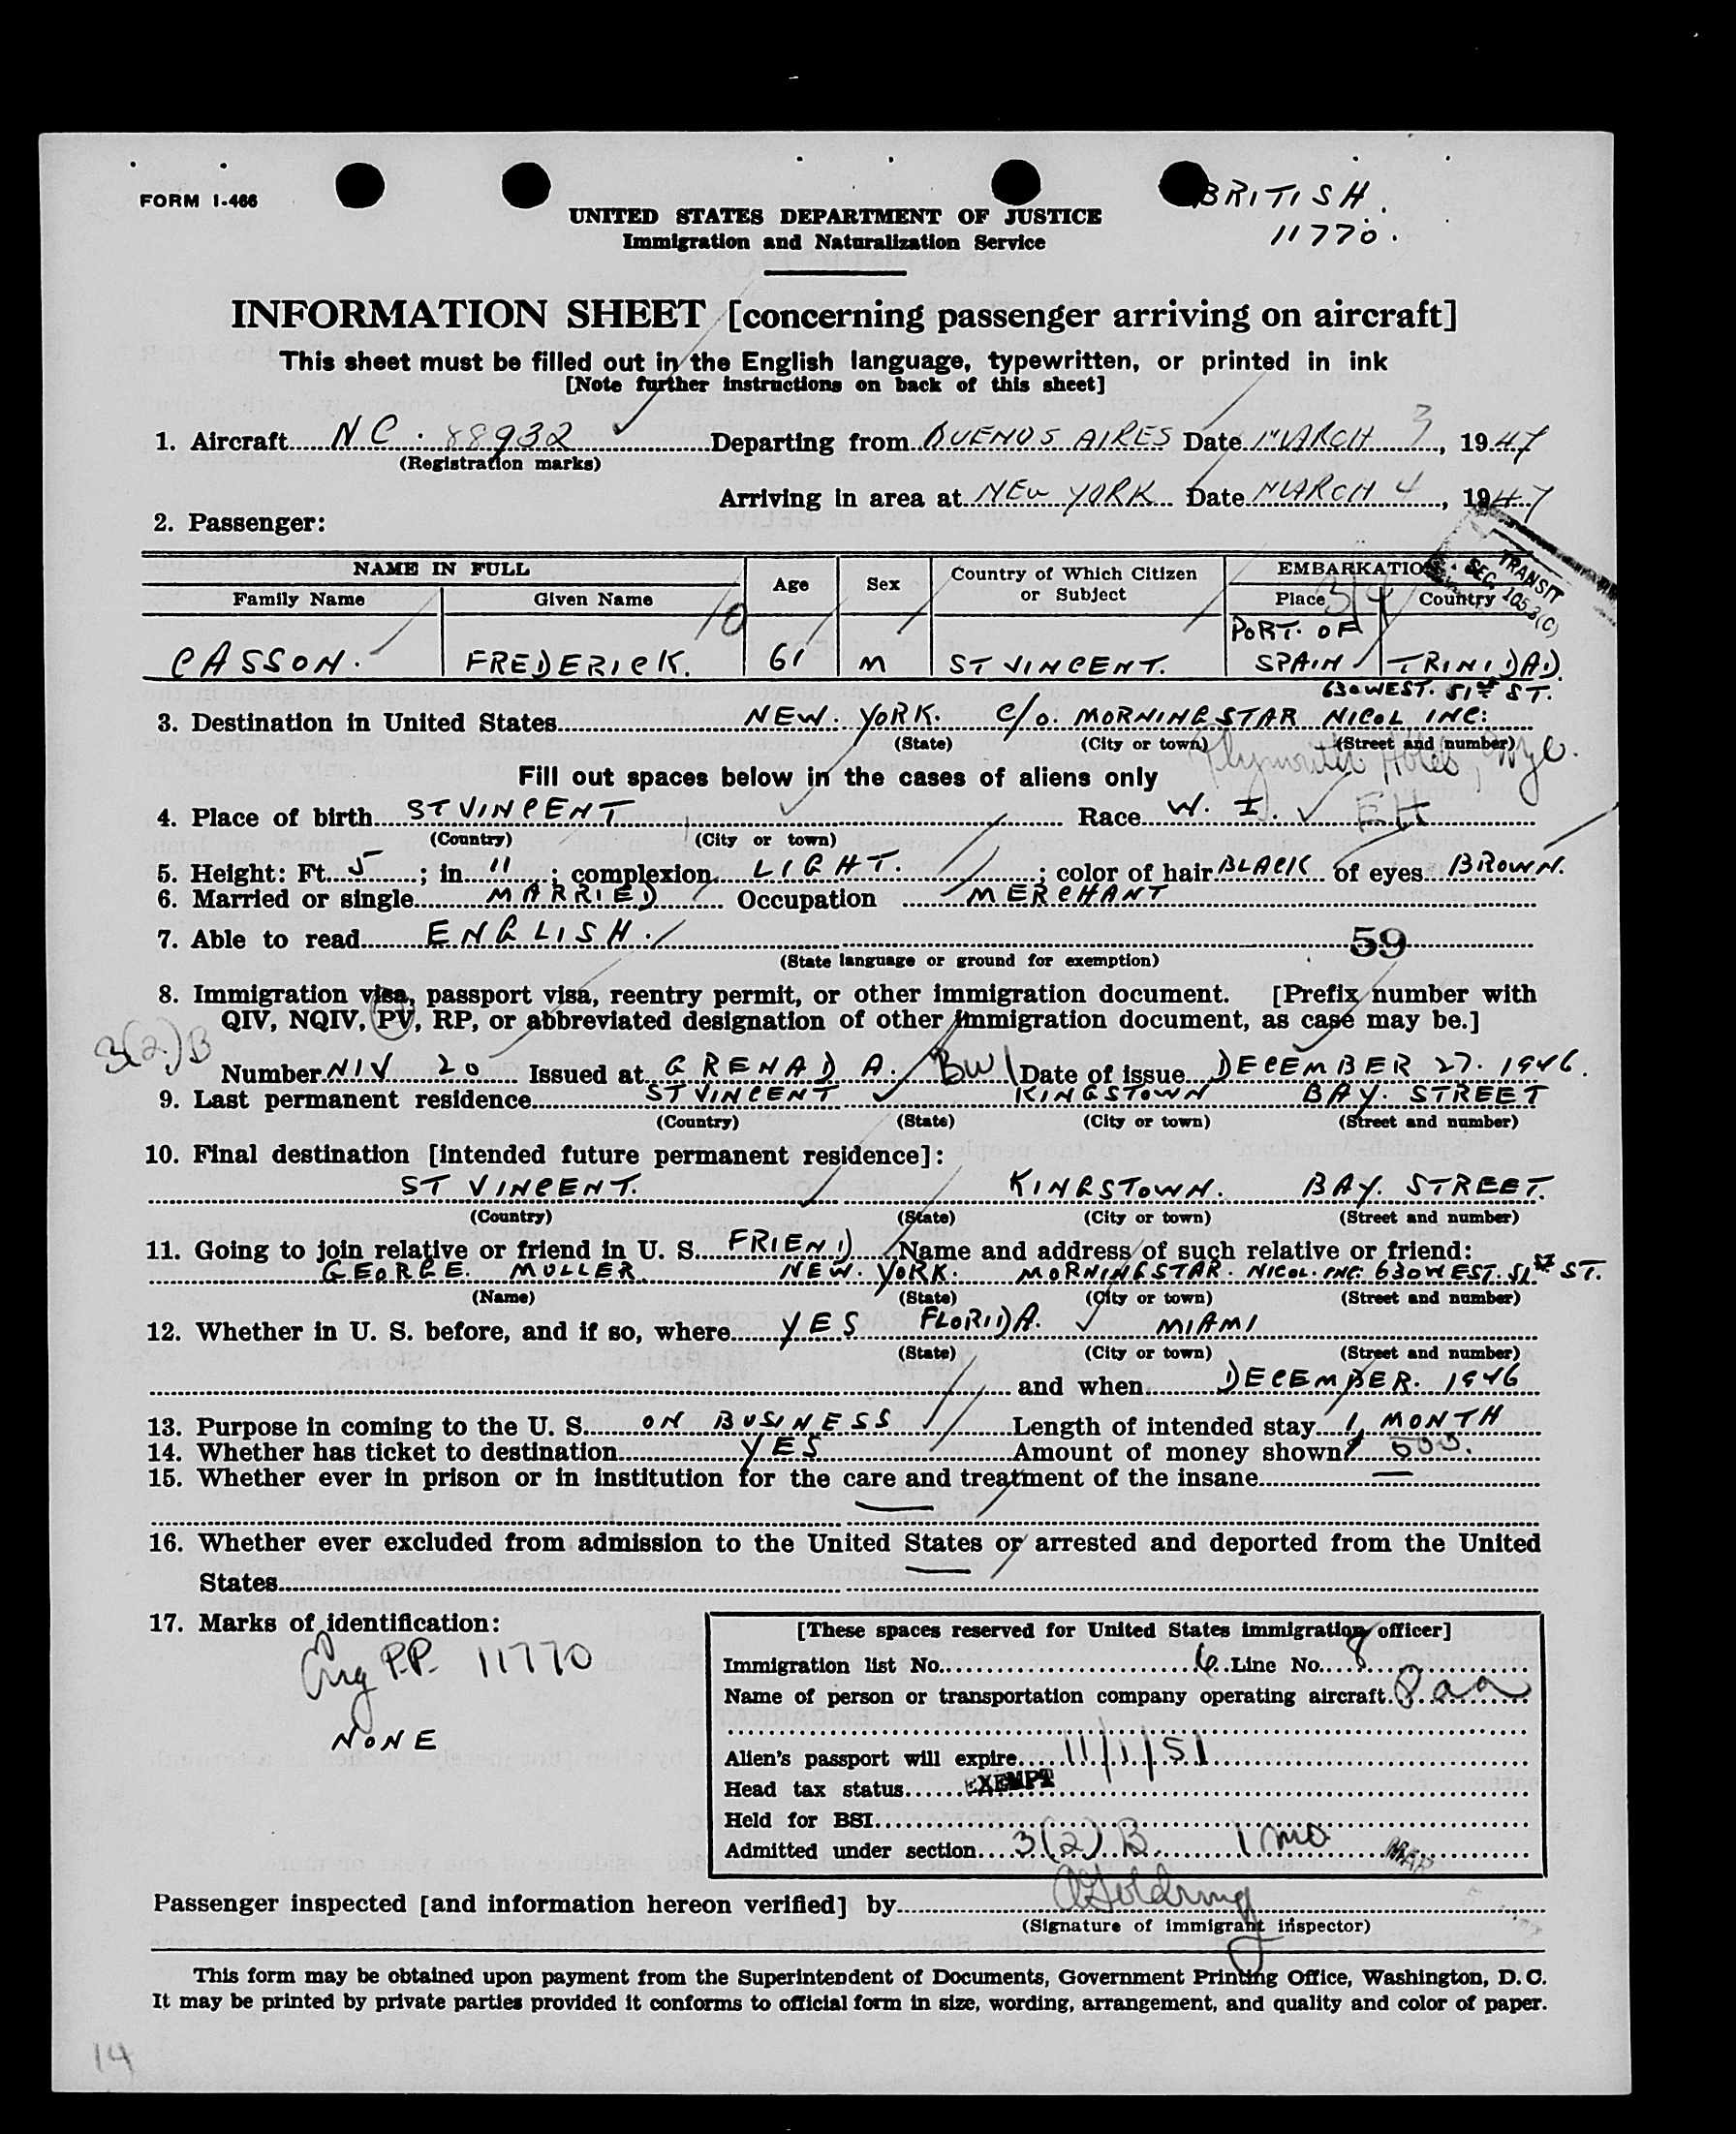 FORM I-466
BRITISH.
11770.
UNITED STATES DEPARTMENT OF JUSTICE
Immigration and Naturalization Service
INFORMATION SHEET [concerning passenger arriving on aircraft]
This sheet must be filled out in the English language, typewritten, or printed in ink
[Note further instructions on back of this sheet]
1. Aircraft NC. 88932 Departing from BUENOS AIRES Date MARCH 3, 1947
(Registration marks)
Arriving in area at NEW YORK Date MARCH 4, 1947
2. Passenger:
TRANSIT
SEC. 105.3(C)
NAME IN FULL Age Sex Country of Which Citizen or Subject EMBARKATION
Family Name Given Name Place Country
3/4
10
CASSON. FREDERICK. 61 M ST VINCENT. PORT. OF SPAIN TRINIDAD.
630 WEST. 51st ST.
3. Destination in United States NEW. YORK. C/o. MORNINGSTAR NICOL INC:
(State) (City or town) (Street and number)
Plymouth Hotel, Nyc.
Fill out spaces below in the cases of aliens only
4. Place of birth ST VINCENT Race W. I. EH
(Country) (City or town)
5. Height: Ft. 5; in. 11; complexion LIGHT.; color of hair BLACK of eyes BROWN.
6. Married or single MARRIED Occupation MERCHANT
7. Able to read ENGLISH. 59
(State language or ground for exemption)
8. Immigration visa, passport visa, reentry permit, or other immigration document. [Prefix number with
QIV, NQIV, PV, RP, or abbreviated designation of other immigration document, as case may be.]
3(2)B
Number NIV 20 Issued at GRENADA. BWI Date of issue DECEMBER 27. 1946.
9. Last permanent residence ST VINCENT KINGSTOWN BAY. STREET
(Country) (State) (City or town) (Street and number)
10. Final destination [intended future permanent residence]:
ST VINCENT. KINGSTOWN. BAY. STREET.
(Country) (State) (City or town) (Street and number)
11. Going to join relative or friend in U. S. FRIEND Name and address of such relative or friend:
GEORGE. MULLER NEW. YORK. MORNINGSTAR. NICOL. INC. 630 WEST. 51st ST.
(Name) (State) (City or town) (Street and number)
12. Whether in U. S. before, and if so, where YES FLORIDA. MIAMI
(State) (City or town) (Street and number)
and when DECEMBER. 1946
13. Purpose in coming to the U. S. ON BUSINESS Length of intended stay 1 MONTH
14. Whether has ticket to destination YES Amount of money shown 600.
15. Whether ever in prison or in institution for the care and treatment of the insane —
—
16. Whether ever excluded from admission to the United States or arrested and deported from the United
States —
17. Marks of identification:
Eng P.P. 11770
NONE
[These spaces reserved for United States immigration officer]
Immigration list No. 6 Line No. 8
Name of person or transportation company operating aircraft. Paa
Alien's passport will expire 11/1/51
Head tax status EXEMPT
Held for BSI
Admitted under section 3(2)B 1 mo MAR
Passenger inspected [and information hereon verified] by AGoldring
(Signature of immigrant inspector)
This form may be obtained upon payment from the Superintendent of Documents, Government Printing Office, Washington, D. C.
It may be printed by private parties provided it conforms to official form in size, wording, arrangement, and quality and color of paper.
14